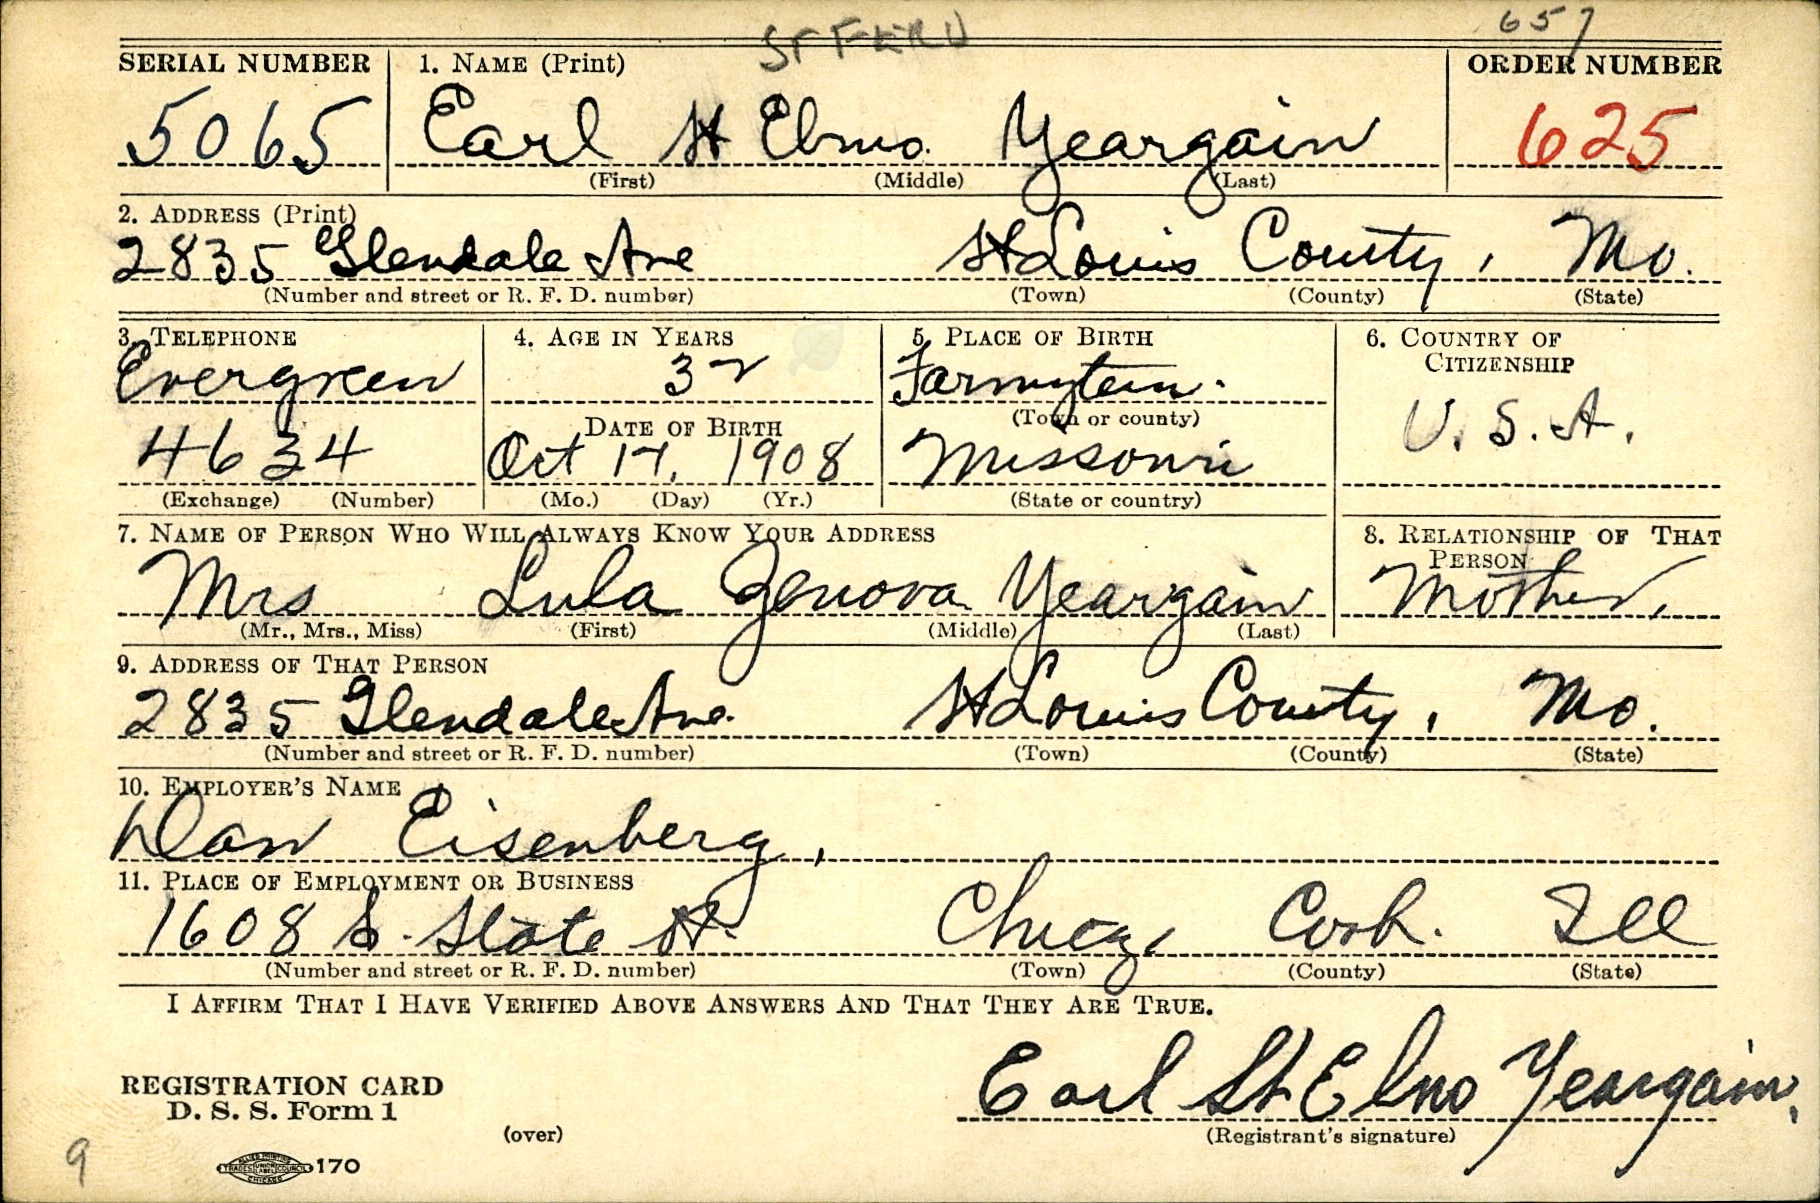 657
SERIAL NUMBER 1. NAME (Print) ORDER NUMBER
5065 Earl St Elmo Yeargain 625
(First) (Middle) (Last)
2. ADDRESS (Print)
2835 Glendale Ave St Louis County, Mo.
(Number and street or R. F. D. number) (Town) (County) (State)
3. TELEPHONE 4. AGE IN YEARS 5. PLACE OF BIRTH 6. COUNTRY OF
CITIZENSHIP
Evergreen 32
(Town or county)
DATE OF BIRTH U. S. A.
4634 Oct 14, 1908 Missouri
(Exchange) (Number) (Mo.) (Day) (Yr.) (State or country)
7. NAME OF PERSON WHO WILL ALWAYS KNOW YOUR ADDRESS 8. RELATIONSHIP OF THAT
PERSON
Mrs Lula Genova Yeargain Mother,
(Mr., Mrs., Miss) (First) (Middle) (Last)
9. ADDRESS OF THAT PERSON
2835 Glendale Ave. St Louis County, Mo.
(Number and street or R. F. D. number) (Town) (County) (State)
10. EMPLOYER'S NAME
Dan Eisenberg,
11. PLACE OF EMPLOYMENT OR BUSINESS
1608 S. State St. Chicg, Cook. Ill
(Number and street or R. F. D. number) (Town) (County) (State)
I AFFIRM THAT I HAVE VERIFIED ABOVE ANSWERS AND THAT THEY ARE TRUE.
Earl St Elmo Yeargain,
REGISTRATION CARD
D. S. S. Form 1
(over) (Registrant's signature)
9 170